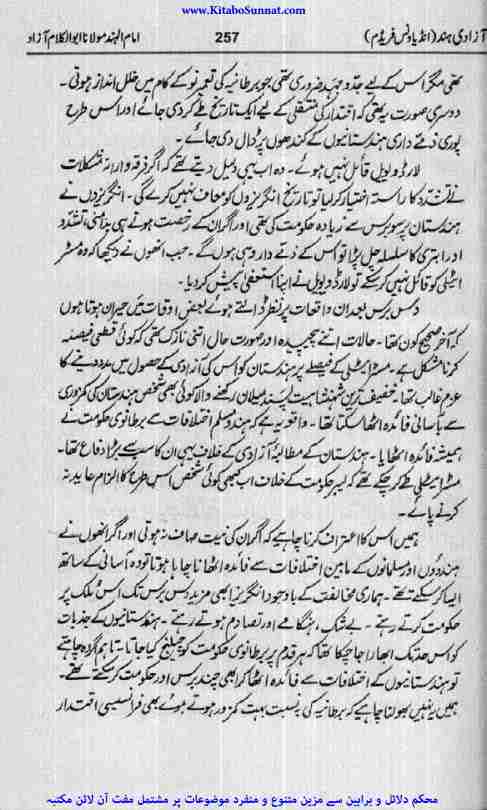 www.KitaboSunnat.com
آزادی ہند (انڈیا ونس فریڈم) 257 امام الہند مولانا ابوالکلام آزاد
تھی مگر اس کے لیے جدوجہد ضروری تھی جو برطانیہ کی تعمیر نو کے کام میں خلل انداز ہوتی۔
دوسری صورت یہ تھی کہ اقتدار کی منتقلی کے لیے ایک تاریخ طے کر دی جائے اور اس طرح
پوری ذمے داری ہندستانیوں کے کندھوں پر ڈال دی جائے۔
لارڈ ویول قائل نہیں ہوئے۔ وہ اب یہی دلیل دیتے تھے کہ اگر فرقہ وارانہ مشکلات
نے تشدد کا راستہ اختیار کر لیا تو تاریخ انگریزوں کو معاف نہیں کرے گی۔ انگریزوں نے
ہندستان پر سو برس سے زیادہ حکومت کی تھی اور اگر ان کے رخصت ہوتے ہی بدامنی، تشدد
اور ابتری کا سلسلہ چل پڑا تو اس کے ذمے دار وہی ہوں گے۔ جب انھوں نے دیکھا کہ وہ مسٹر
ایٹلی کو قائل نہیں کر سکتے تو لارڈ ویول نے اپنا استعفیٰ پیش کر دیا۔
دس برس بعد ان واقعات پر نظر ڈالتے ہوئے بعض اوقات میں حیران ہوتا ہوں
کہ آخر صحیح کون تھا۔ حالات اتنے پیچیدہ اور صورت حال اتنی نازک تھی کہ کوئی قطعی فیصلہ
کرنا مشکل ہے۔ مسٹر ایٹلی کے فیصلے پر ہندستان کو اس کی آزادی کے حصول میں مدد دینے کا
عزم غالب تھا۔ خفیف ترین شہنشاہیت پسند میلان رکھنے والا کوئی بھی شخص ہندستان کی کمزوری
سے بآسانی فائدہ اٹھا سکتا تھا۔ واقعہ یہ ہے کہ ہندو مسلم اختلافات سے برطانوی حکومت نے
ہمیشہ فائدہ اٹھایا۔ ہندستان کے مطالبۂ آزادی کے خلاف یہی ان کا سب سے بڑا دفاع تھا۔
مسٹر ایٹلی طے کر چکے تھے کہ لیبر حکومت کے خلاف اب کبھی کوئی شخص اس طرح کا الزام عاید نہ
کرنے پائے۔
ہمیں اس کا اعتراف کرنا چاہیے کہ اگر ان کی نیت صاف نہ ہوتی اور اگر انھوں نے
ہندوؤں اور مسلمانوں کے مابین اختلافات سے فائدہ اٹھانا چاہا ہوتا تو وہ آسانی کے ساتھ
ایسا کر سکتے تھے۔ ہماری مخالفت کے باوجود انگریز ابھی مزید دس برس تک اس ملک پر
حکومت کرتے رہتے۔ بے شک، ہنگامے اور تصادم ہوتے رہتے۔ ہندستانیوں کے جذبات
کو اس حد تک ابھارا جا چکا تھا کہ ہر قدم پر برطانوی حکومت کو چیلنج کیا جاتا۔ تاہم اگر وہ چاہتے
تو ہندستانیوں کے اختلافات سے فائدہ اٹھا کر ابھی چند برس اور حکومت کر سکتے تھے۔
ہمیں یہ نہیں بھولنا چاہیے کہ برطانیہ کی بہ نسبت بہت کمزور ہوتے ہوئے بھی فرانسیسی اقتدار
محکم دلائل و براہین سے مزین متنوع و منفرد موضوعات پر مشتمل مفت آن لائن مکتبہ